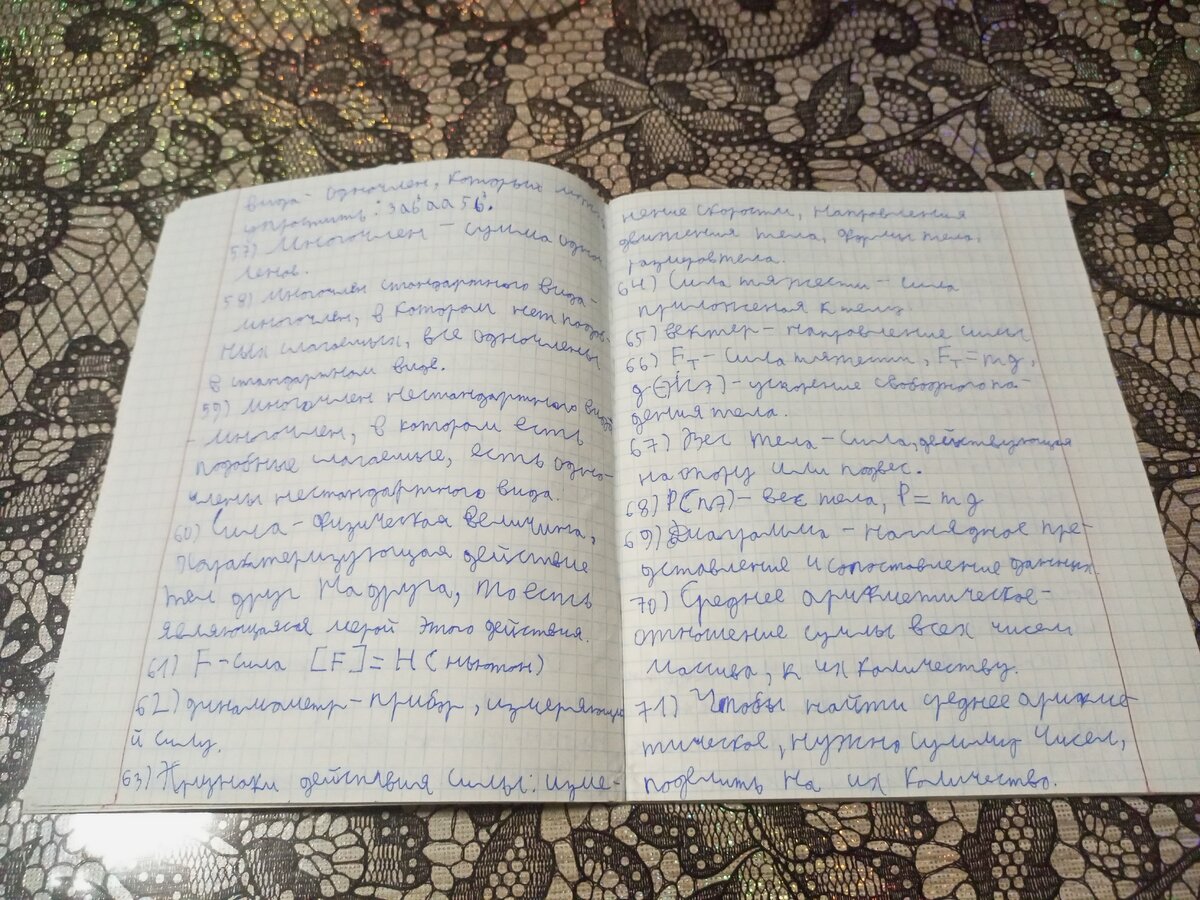 вида - одночлен, которых можно
упростить: 3абаа5б.
57) Многочлен - сумма одноч
ленов.
58) Многочлен стандартного вида -
многочлен, в котором нет подоб-
ных слагаемых, все одночлены
в стандартном виде.
59) Многочлен нестандартного вида
- многочлен, в котором есть
подобные слагаемые, есть одно-
члены нестандартного вида.
60) Сила - физическая величина,
характеризующая действие
тел друг на друга, то есть
являющаяся мерой этого действия.
61) F - сила [F] = Н (ньютон)
62) динамометр - прибор, измеряющи
й силу.
63) Признаки действия силы: изме-
нение скорости, направления
движения тела, формы тела,
размеров тела.
64) Сила тяжести - сила
приложения к телу.
65) вектер - направление силы
66) Fт - сила тяжести, Fт = mg,
g - ускорение свободного па-
дения тела.
67) Вес тела - сила, действующая
на опору или подвес.
68) P - вес тела, P = mg
69) Диаграмма - наглядное пре-
дставление и сопоставление данных
70) Среднее арифметическое -
отношение суммы всех чисел
массива, к их количеству.
71) Чтобы найти среднее арифме-
тическое, нужно сумму чисел,
поделить на их количество.